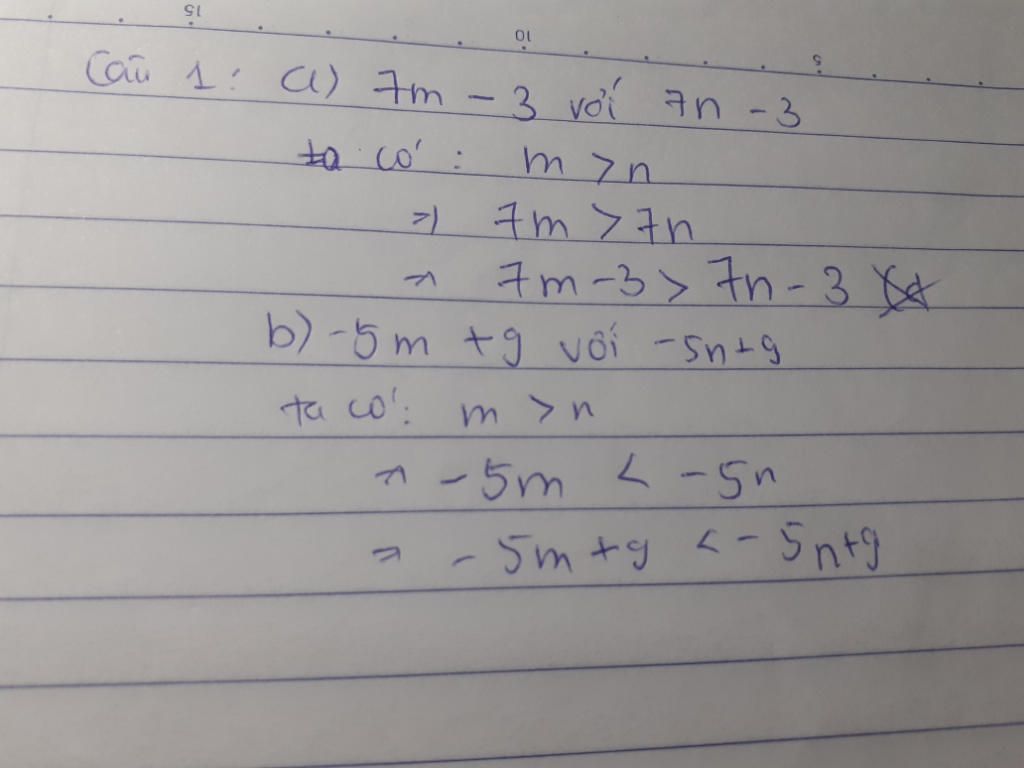 15 10 5
Câu 1: a) 7m - 3 với 7n - 3
ta có: m > n
=> 7m > 7n
=> 7m - 3 > 7n - 3
b) -5m + 9 với -5n + 9
ta có: m > n
=> -5m < -5n
=> -5m + 9 < -5n + 9